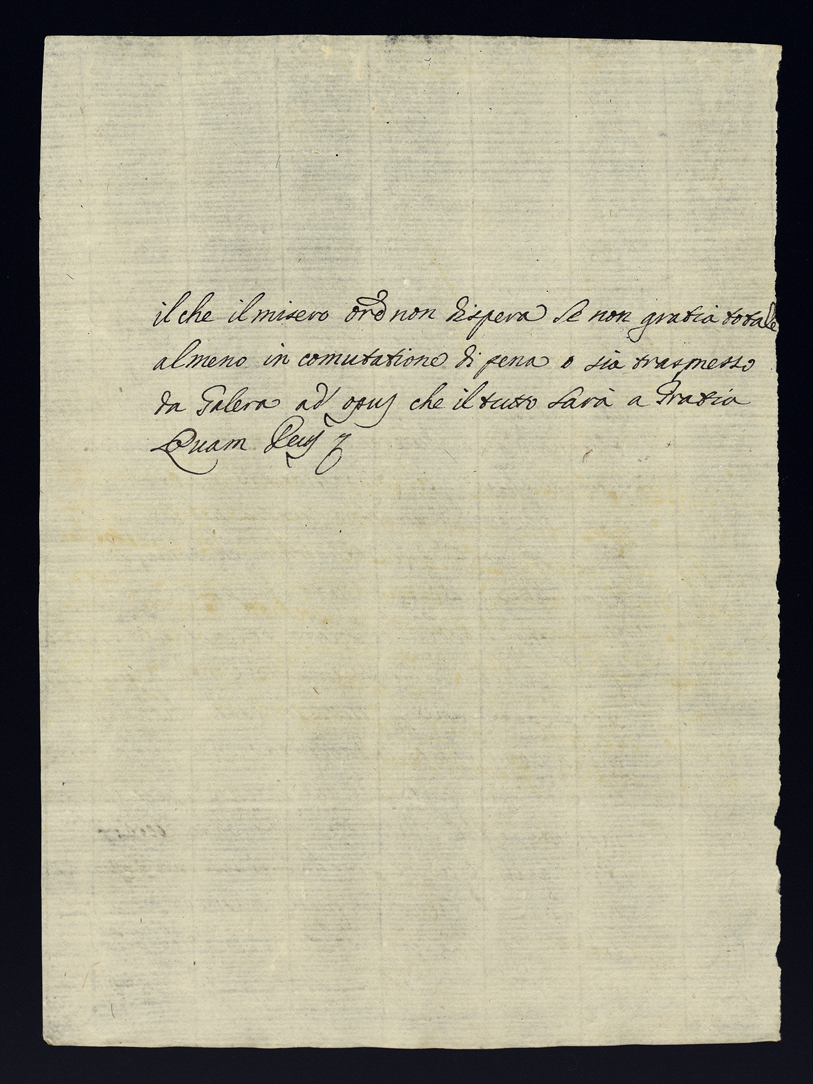 il che il misero ord non dispera se non gratia totale
almeno in comutatione di pena o sia trasmesso
da Galera ad opus che il tutto sarà a Gratia
Quam Deus